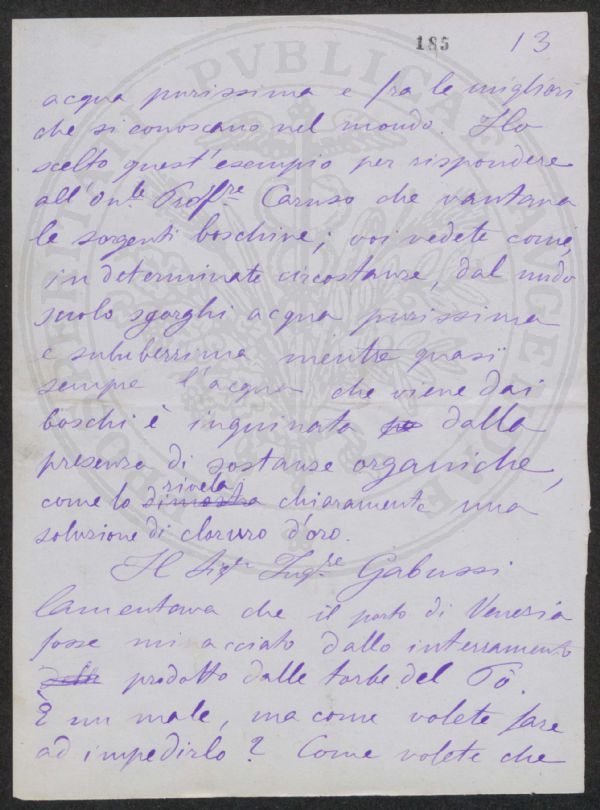 185 13
acqua purissima e fra le migliori
che si conoscano nel mondo. Ho
scelto quest'esempio per rispondere
all'On.le Proff.re Caruso che vantava
le sorgenti boschive; voi vedete come,
in determinate circostanze, dal nudo
suolo sgorghi acqua purissima
e saluberrima mentre quasi
sempre l'acqua che viene dai
boschi è inquinata dalla
presenza di sostanze organiche,
rivela
come lo dimostra chiaramente una
soluzione di cloruro d'oro.
Il Sig.r Ing.re Gabussi
lamentava che il porto di Venezia
fosse minacciato dallo interramento
prodotto dalle torbe del Pô.
È un male, ma come volete fare
ad impedirlo? Come volete che